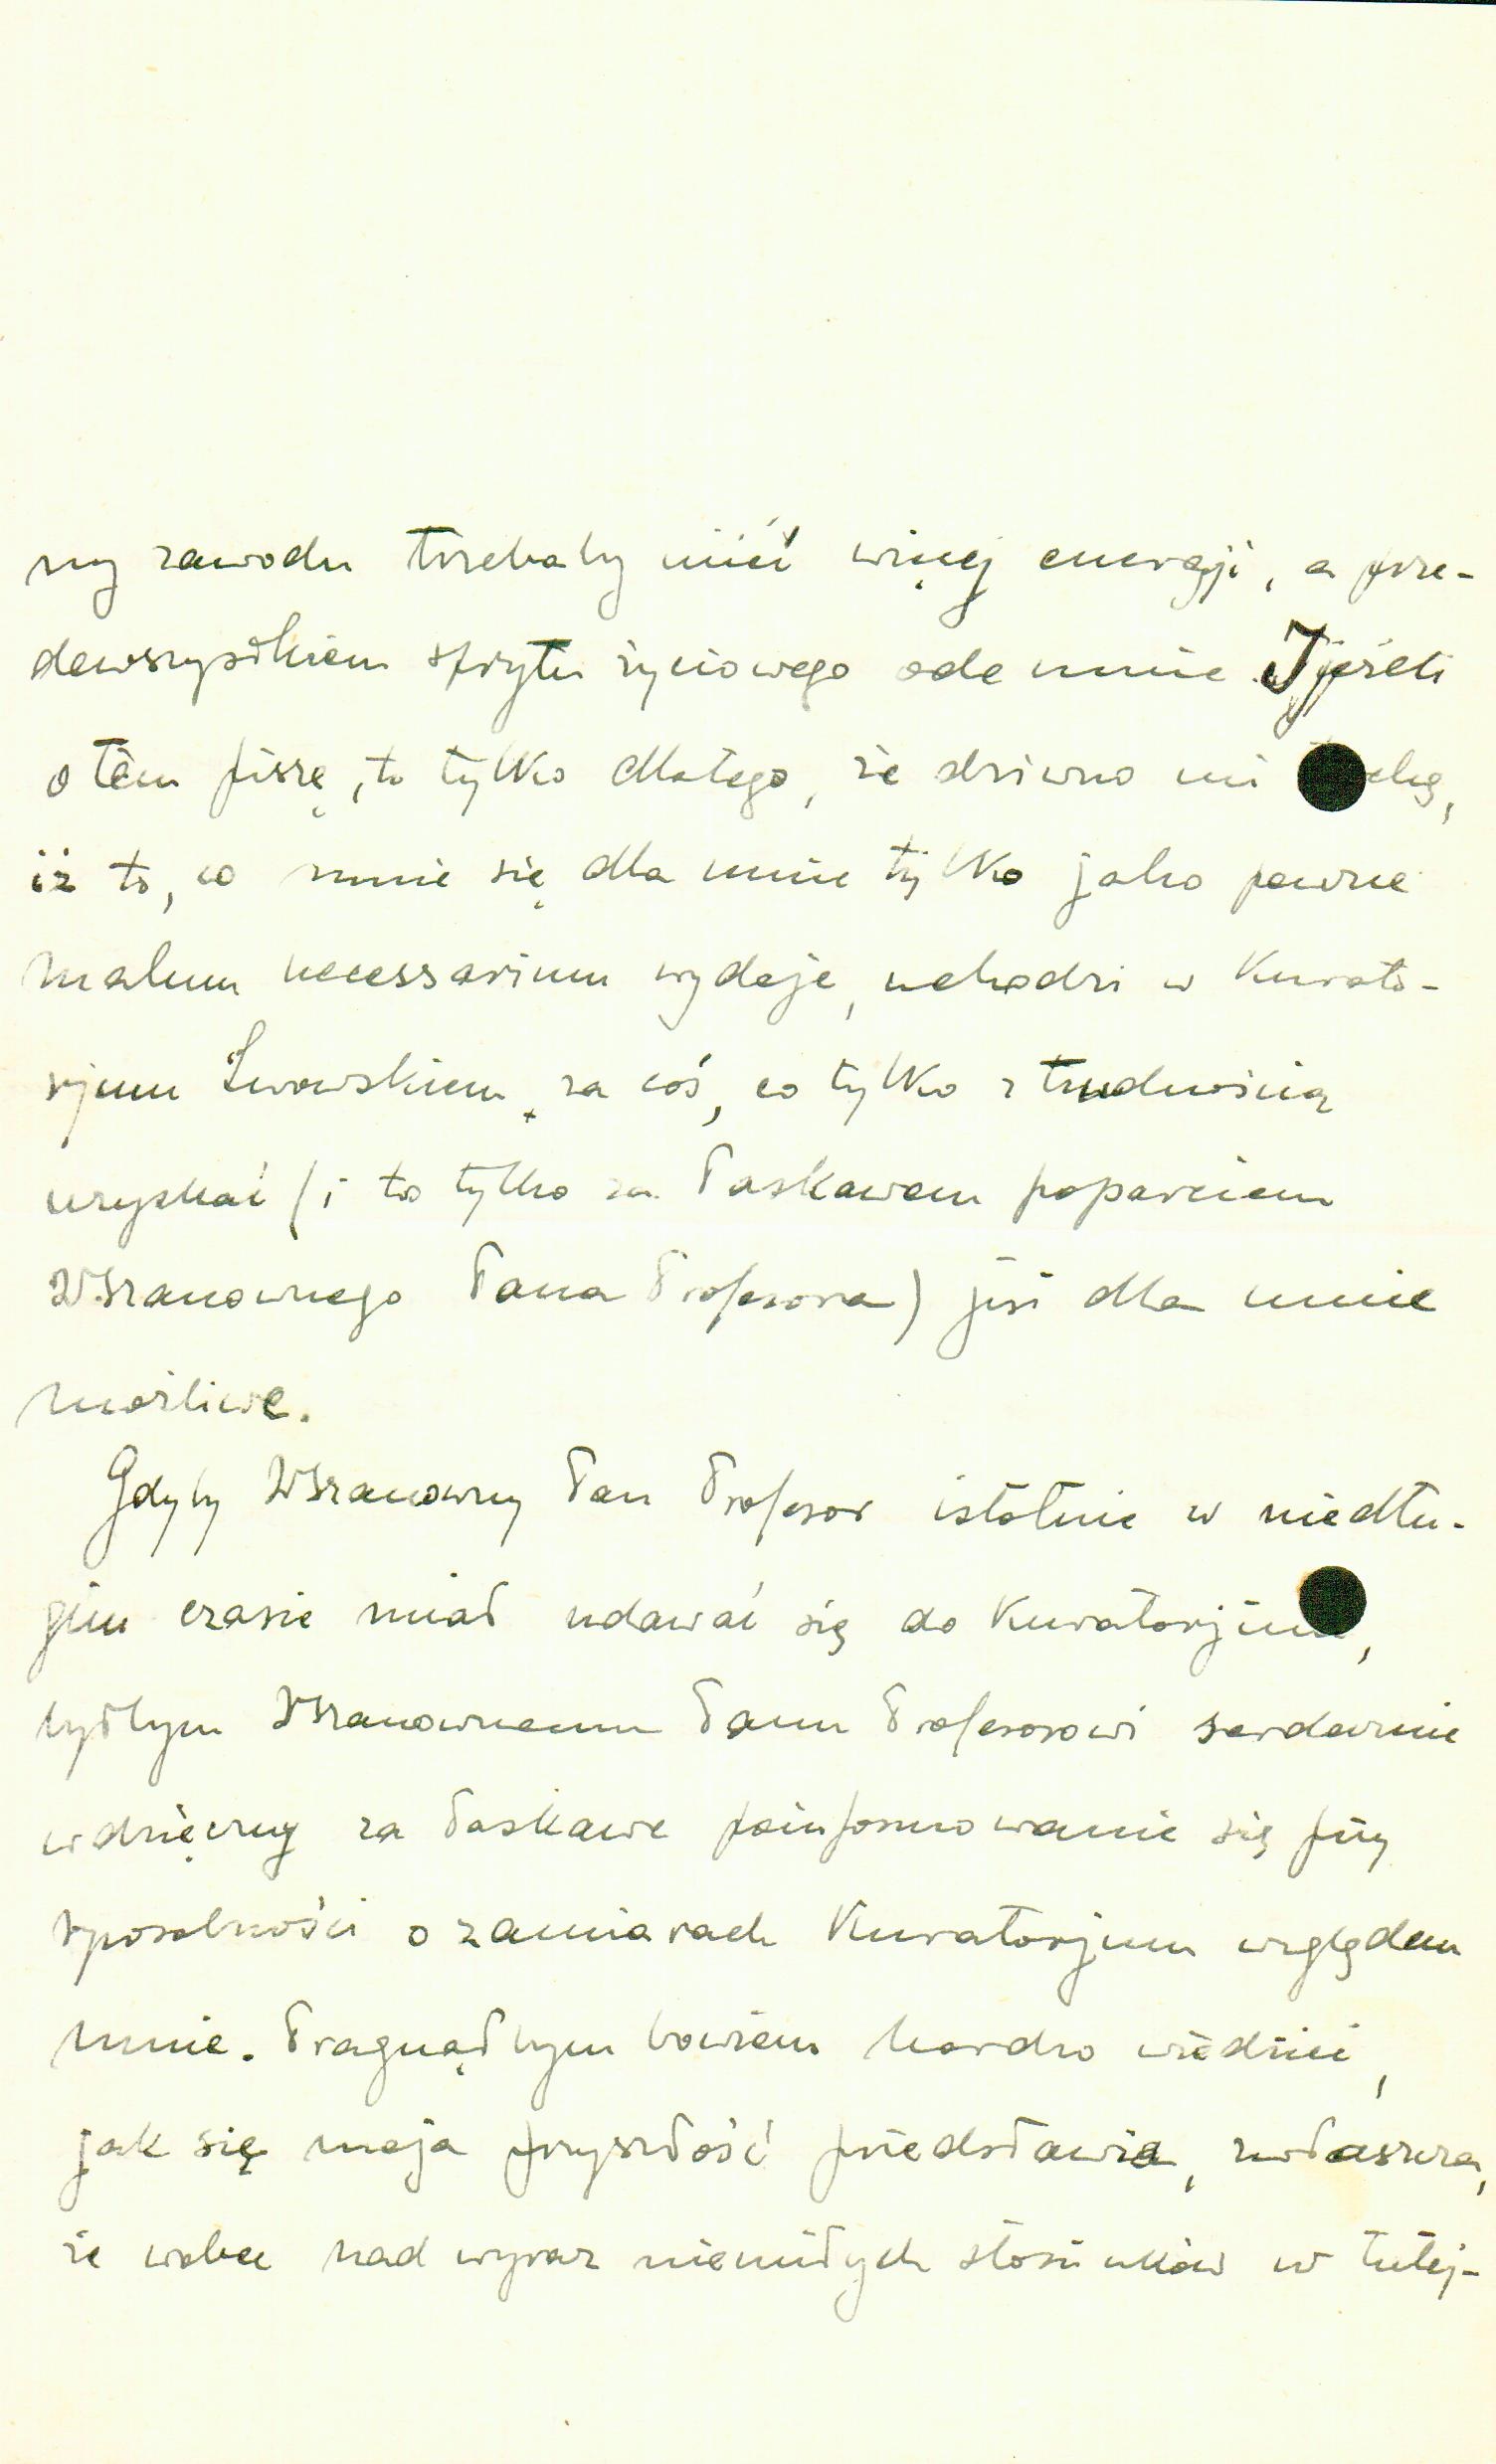 ny zawodu trzebaby mieć więcej energji, a prze-
dewszystkiem sprytu życiowego ode mnie. Jeżeli
o tem piszę, to tylko dlatego, że dziwno mi
iż to, co mnie się dla mnie tylko jako pewne
malum necessarium wydaje, uchodzi w Kurato-
rjum Lwowskiem za coś, co tylko z trudnością
uzyskać (i to tylko za łaskawem poparciem
WSzanownego Pana Profesora) jest dla mnie
możliwe.
Gdyby WSzanowny Pan Profesor istotnie w niedłu-
gim czasie miał udawać się do Kuratorjum,
byłbym WSzanownemu Panu Profesorowi serdecznie
wdzięczny za łaskawe poinformowanie się przy
sposobności o zamiarach Kuratorjum względem
mnie. Pragnąłbym bowiem bardzo wiedzieć,
jak się moja przyszłość przedstawia, zwłaszcza,
że wobec nad wyraz niemiłych stosunków w tutej-